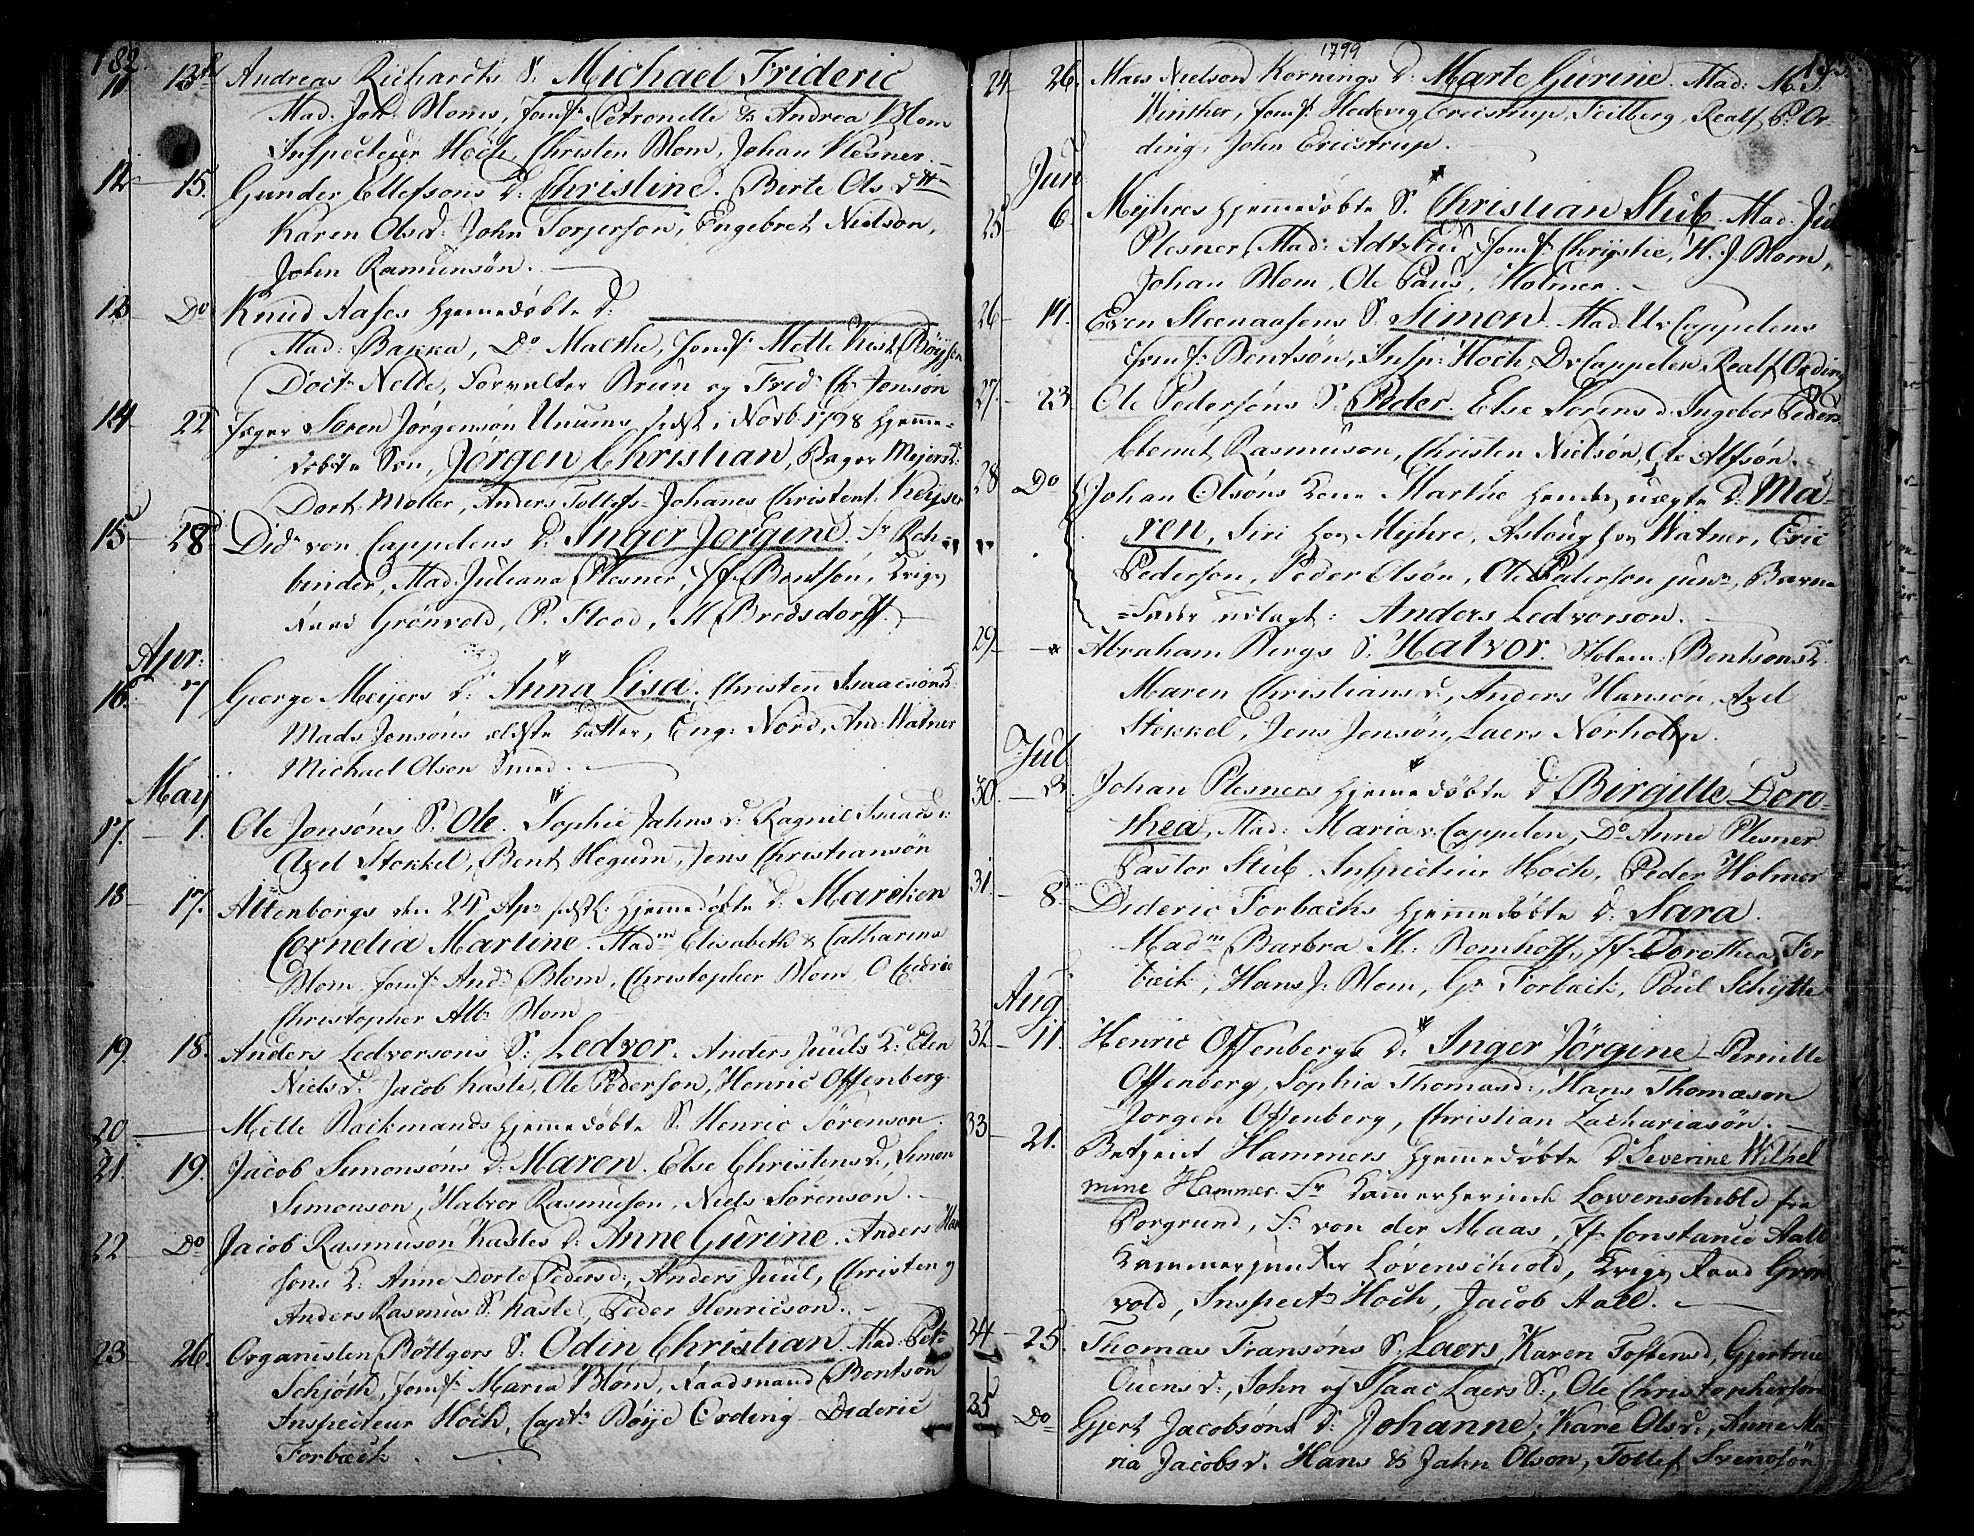 182.
11 13de Andreas Richardts S. Michael Frideric
Mad: Joh: Bloms, Jomf. Petronelle & Andrea Blom
Inspecteur Hoch, Christen Blom, Johan Plesner.
12 15. Gunder Ellefsons D. Christine. Birte Ols dttr
Karen Olsd: John Torjersons, Engebret Nielson,
John Ramunsön.
13 Do Knud Aases hjemedøbte D:
Mad: Bakka, Do Malthe, Jomf. Mette Kest.
Doctr Nelde, Forvalter Brun og Fridr Ch Jensön
14 22 Søren Jørgensön Unums sidst. Novb 1798 hjemme-
døbte Søn, Jørgen Christian, Meyers K:
Dort. Moller, Anders Tollefs. Johanes Christens. Keyser
15 28 Didr von Cappelens D. Inger Jørgine. Fr Reh-
binder, Mad: Juliana Plesner, Jf. Bentson, Krigs
Raad Grönvold, P. Flood, M Bredsdorff.
Apr:
16 7 George Meijers D. Anna Lisa. Christen Isaacsöns K:
Mads Jensöns eldste Datter, Eng: Nord, And: Watner
Michael Olson Smed.
May
17. 1. Ole Jonsöns S. Ole. Sophie Jahns d: Ragnil Isaacs d:
Axel Stokkel, Bent Hegum, Jens Christiansön
18 17. Altenborgs den 24 Apr hjemedøbte D: Mareken
Cornelia Martine. Madme Elisabeth & Catharina
Blom Jomf. Andr Blom, Christopher Blom, O Cudrio
Christopher Albr Blom
19. 18. Anders Ledvorsons S. Ledvor. Anders Juuls K: Elen
Nielsd. Jacob Kaste, Ole Pederson, Henric Offenberg.
20 Mette Backmands hjemedøbte S. Henric Sørenson.
21. 19. Jacob Simonsöns D: Maren. Else Christensd:, Simon
Simonson, Halvor Rasmuson, Niels Sørenson.
22 Do Jacob Rasmuson Kastes D. Anne Gurine. Anders Han
sons K: Anne Dorte Pedersd: Anders Juul, Christen og
Anders Rasmus S. Kaste, Peder Henricson.
23 26. Organisten Böttgers S. Odin Christian. Mad: Pet:
Schjöth, Jomf. Maria Blom, Raadmand Bentson
Inspecteur Hoch, Captn Böije Ording Dideric
Forbeck.
1799
24 26. Maes Nielson Kornings D: Marte Gurine. Mad: M. S.
Winther, Jomf. Hedevig Ericstrup, Feilberg, Realf P. Or
ding, John Ericstrup.
Jun
25 6. Mejhres hjemedøbte S. Christian Stub. Mad: Jul
Plesner, Mad: Adtzlew, Jomf. Chrystie, H. J. Blom,
Johan Blom, Ole Paus, Holmer.
26 11. Even Steenaasens S. Simon. Mad: Uv Cappelens
Jomf. Bentsön, Insp: Hoch, Dv Cappelen Realf Ording
27 23 Ole Pedersöns S. Peder. Else Sørens d. Ingebor Peders
Clemet Rasmuson, Christen Nielsön, Ole Alfsön.
28 Do Johan Olsöns Kone Marthe hendes uægte D: Ma-
ren, Siri hos Mejhre, Aslaug hos Watner, Eric
Pederson, Peder Olsön, Ole Pederson junr, Barne
-Fader udlagt: Anders Ledvorson.
29 Abraham Bergs S. Halvor. Bentsons K:
Maren Christians d:, Anders Hansön, Axel
Stokkel, Jens Jensön, Laers Nørholm.
Jul
30 3. Johan Plesners hjemmedøbte D Birgitte Doro-
thea, Mad: Maria v: Cappelen, Do Anne Plesner
Pastor Stub, Inspecteur Hoch, Peder Holmer
31. 8. Dideric Forbachs hjemmedøbte D. Sara.
Madme Barbra M: Bomhoff, Jf Dorothea For
beck, Hans J. Blom, Forbeck, Poul Schytte
Aug
32 11. Henric Offenbergs D. Inger Jörgine Pernille
Offenberg, Sophia Thomasd:, Hans Thomæson
Jørgen Offenberg, Christian Zachariasön.
33 21. Betjent Hammers hjemmedøbte D Severine Wilhel
mine Hammer. Fr Kamerherinde Lowenschild fra
Porgrund, Fr von der Maas, Jf Constance Aall
Kammerjunker Lovenschiold, Krigs Raad Gron
vold, Inspectr Hoch, Jacob Aall.
34 25. Thomas Fransöns S. Laers, Karen Toftensd, Gjertrue
Ouens d:, John og Isaac Laers S:, Ole Christopherson
35 Do Gjert Jacobsöns D: Johanne, Kare Olsd:, Anne Ma
ria Jacobsd: Hans & Jahn Olson, Tollef Svensön